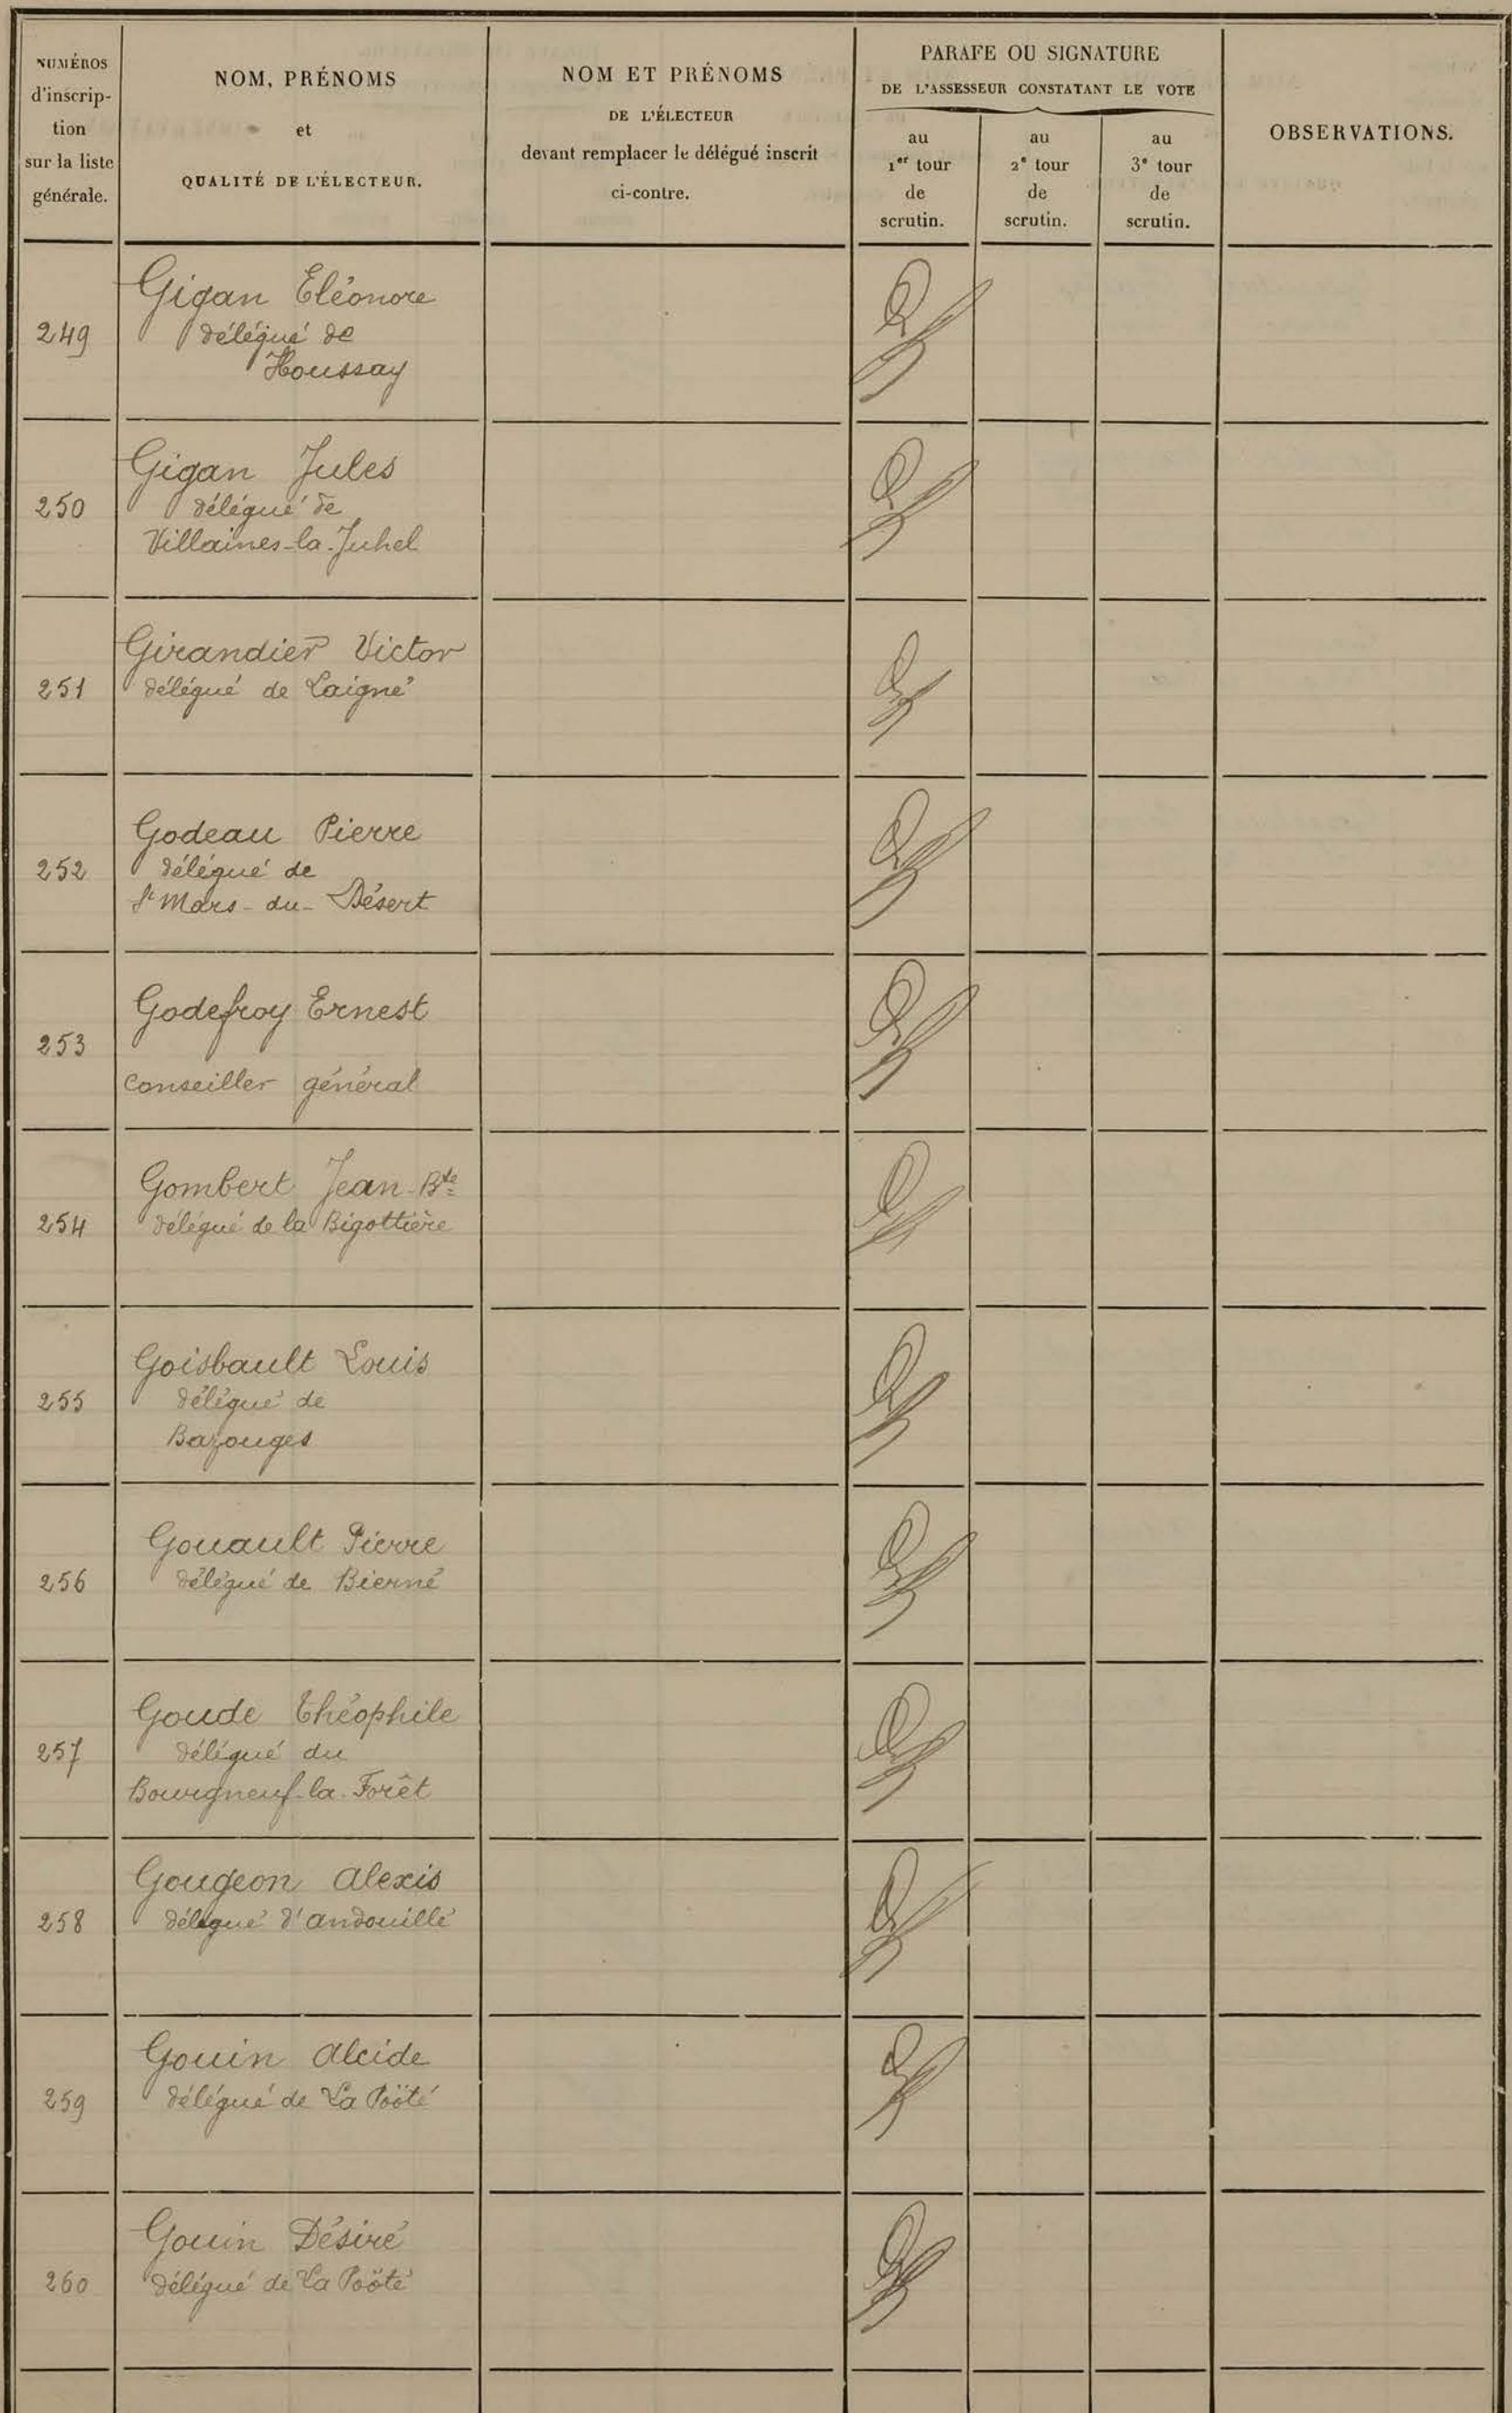 NUMÉROS
d'inscrip-
tion
sur la liste
générale.
NOM, PRÉNOMS
et
QUALITÉ DE L'ÉLECTEUR.
NOM ET PRÉNOMS
DE L'ÉLECTEUR
devant remplacer le délégué inscrit
ci-contre.
PARAFE OU SIGNATURE
DE L'ASSESSEUR CONSTATANT LE VOTE
au
1er tour
de
scrutin.
au
2e tour
de
scrutin.
au
3e tour
de
scrutin.
OBSERVATIONS.
249
Gigan Eléonore
délégué de
Houssay
250
Gigan Jules
délégué de
Villaines-la-Juhel
251
Girandier Victor
délégué de Laigné
252
Godeau Pierre
délégué de
St Mars-du-Désert
253
Godefroy Ernest
Conseiller général
254
Gombert Jean-Bte
délégué de la Bigottière
255
Goisbault Louis
délégué de
Bazouges
256
Gouault Pierre
délégué de Bierné
257
Goude Théophile
délégué du
Bourgneuf-la-Forêt
258
Gougeon Alexis
délégué d'Andouillé
259
Gouin Alcide
délégué de La Pöôté
260
Gouin Désiré
délégué de La Pöôté